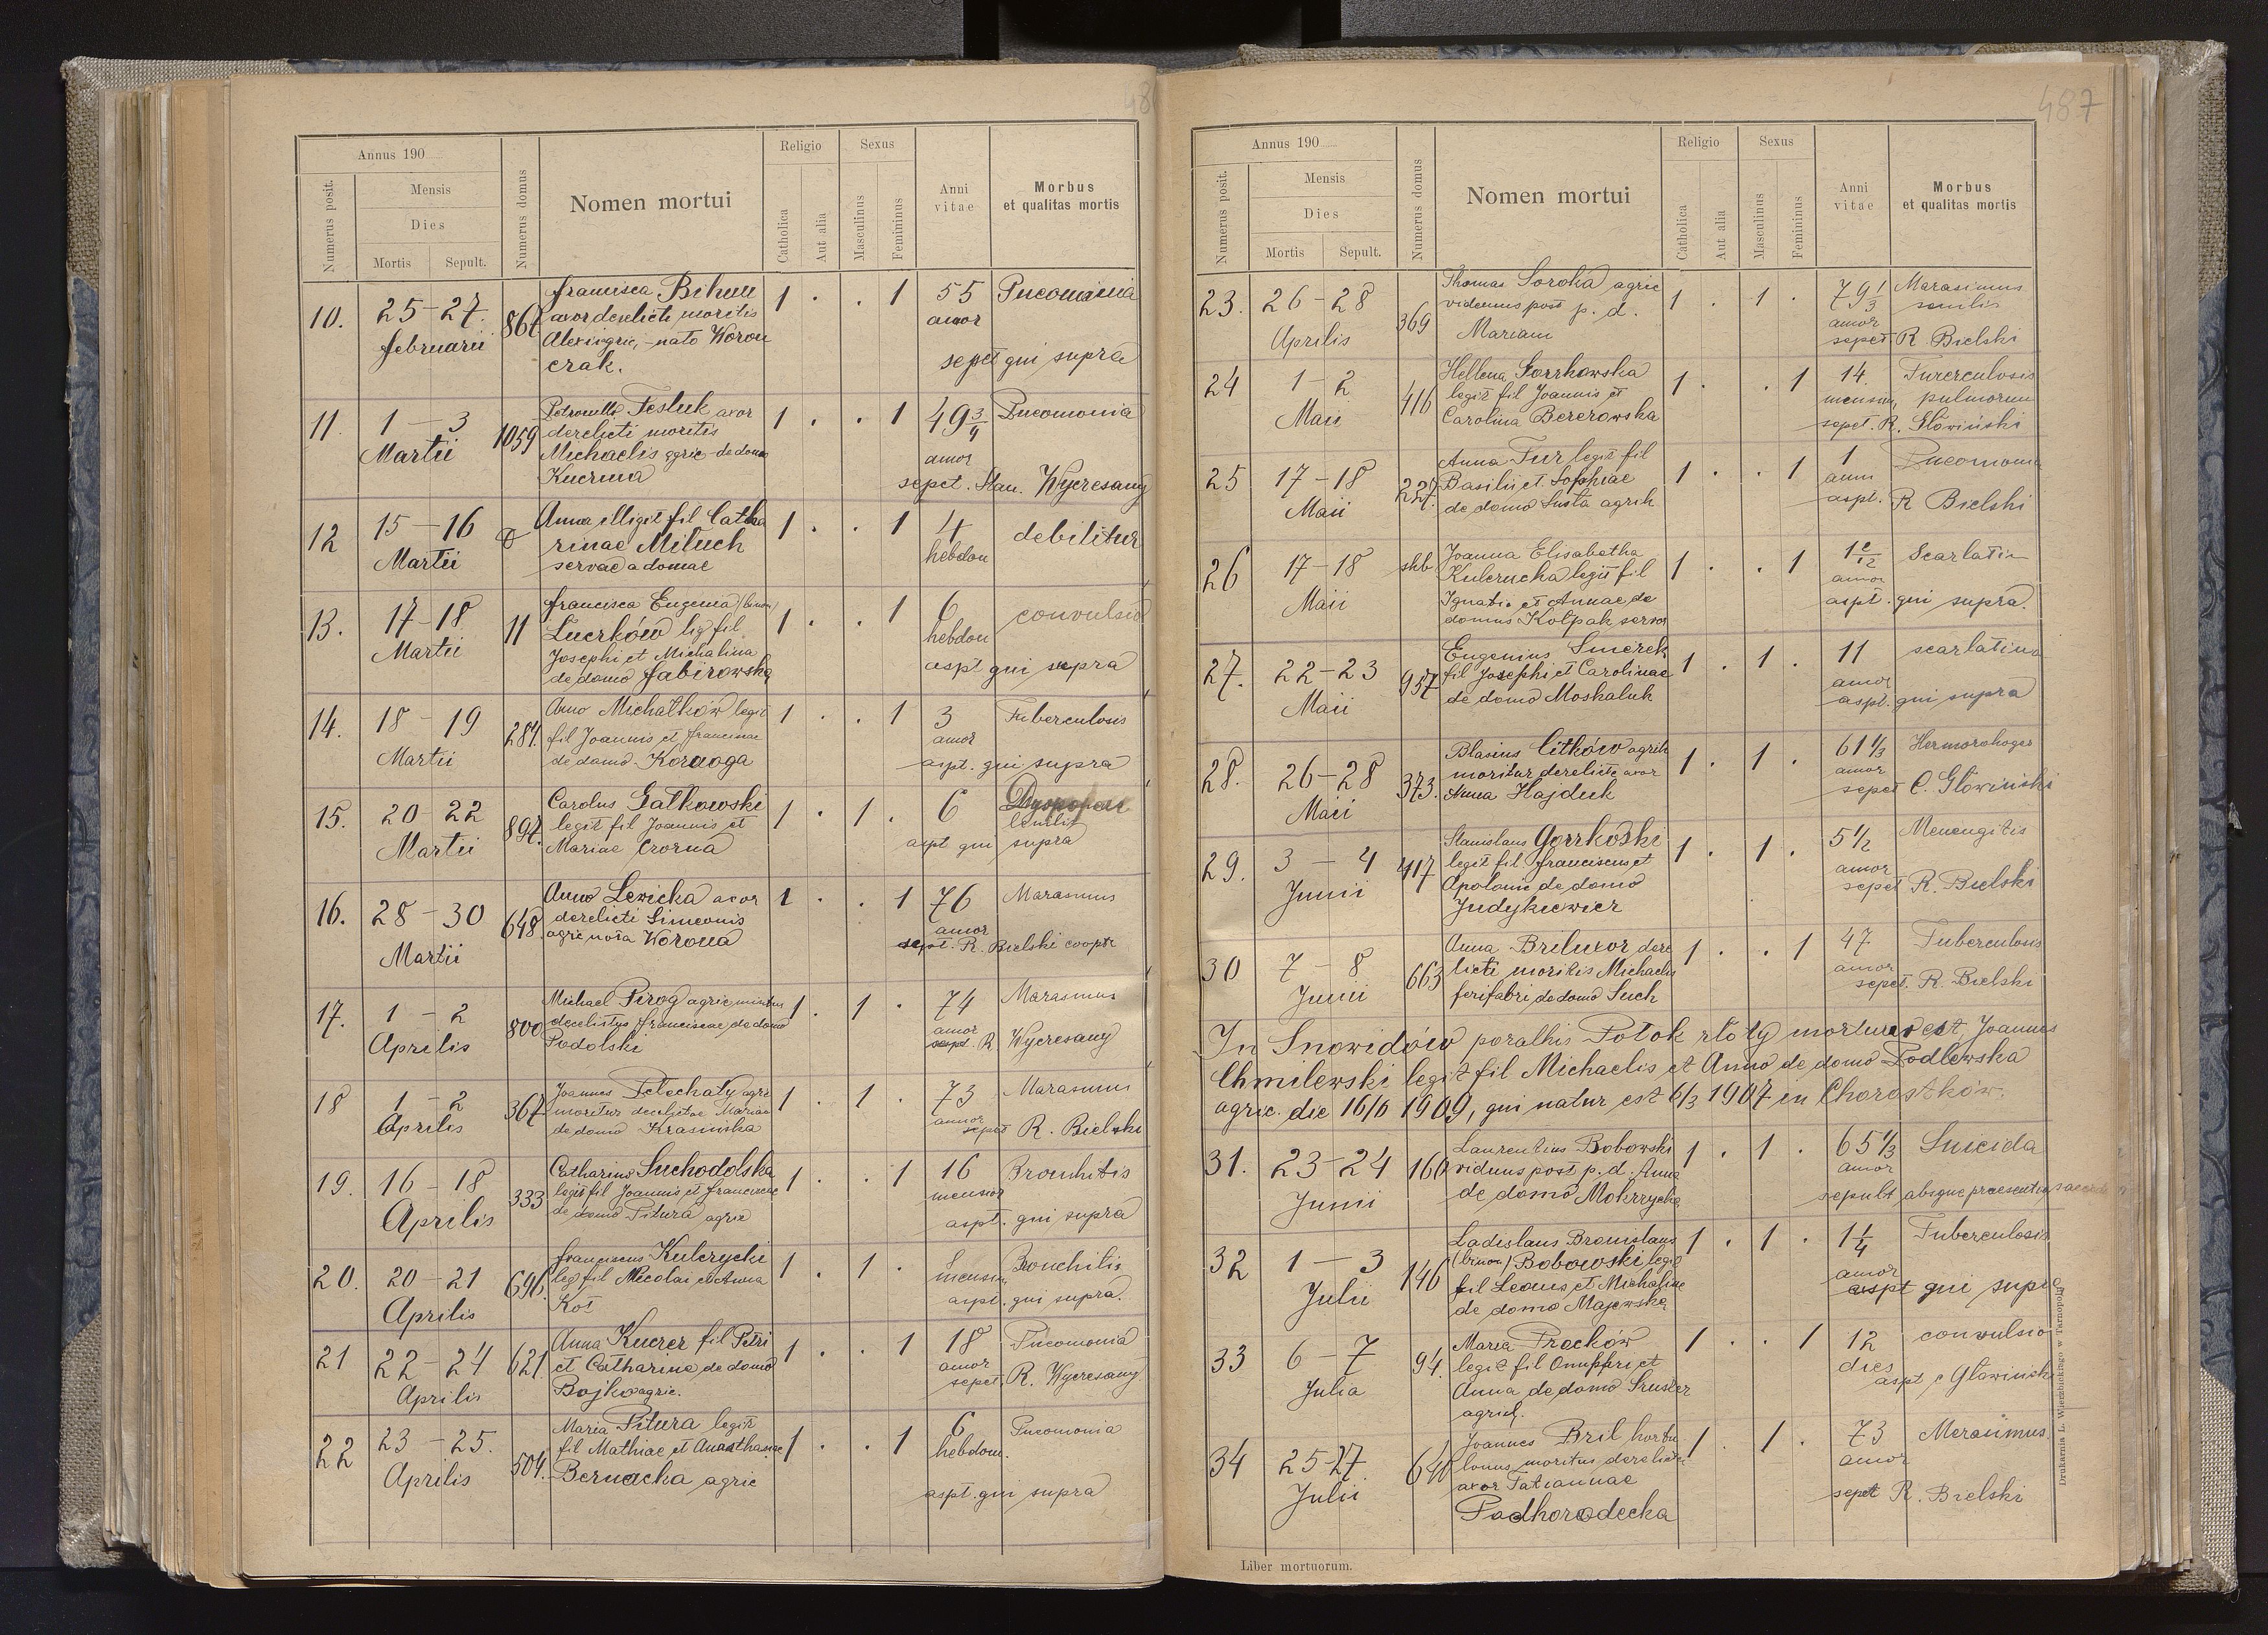 48
Annus 190
Numerus posit.
Mensis
Dies
Mortis Sepult.
Numerus domus
Nomen mortui
Religio
Catholica
Aut alia
Sexus
Masculinus
Femininus
Anni vitae
Morbus et qualitas mortis
10. 25-27. februarii 867 francisca Bihun 1 . . 1 55 Pneomonia
uxor derelicti moritis
Alexii agric, nato Woron
czak.
sepet qui supra
11. 1-3 Martii 1059 Petronella Tesluk uxor 1 . . 1 49 3/4 Pneomonia
derelicti moritis
Michaelis agric de domo
Kuczma
sepet. Stan. Wyczesany
12 15-16 Martii Anna illigit fil Catha 1 . . 1 4 hebdom debilitur
rinae Miluch
servae a domae
13. 17-18 Martii 11 francisca Eugenia (binom) 1 . . 1 6 hebdom convulsio
Luczków lig fil
Josephi et Michalina
de domo fabirowska
aspt qui supra
14. 18-19 Martii 284. Anna Michalków legit 1 . . 1 3 Tuberculosis
fil Joannis et franciscae
de domo
aspt. qui supra
15. 20-22 Martii 897. Carolus Galkowski 1 . 1 . 6
legit fil Joannis et
Mariae Czorna
aspt qui supra
16. 28-30 Martii 648. Anna Lewicka uxor 1 . . 1 76 Marasmus
derelicti Simeonis
agric nata Worona
sept. R. Bielski coopr
17. 1-2 Aprilis 800 Michael Pirog agric 1 . 1 . 74 Marasmus
derelictus franciscae de domo
Podolski
R Wyczesany
18 1-2 Aprilis 367 Joannes Petechaty agric 1 . 1 . 73 Marasmus
moritur derelictae Mariae
de domo Krasinska
sepet R. Bielski
19. 16-18 Aprilis 333 Catharina Suchodolska 1 . . 1 16 mensior Bronhitis
legit fil Joannis et franciscae
de domo Pitura agric
aspt. qui supra
20. 20-21 Aprilis 646. franciscus Kulczycki 1 . 1 . Bronchitis
leg fil Nicolai et Anna
Kot
aspt. qui supra.
21 22-24 Aprilis 621 Anna Kuczer fil Petri 1 . . 1 18 Pneomonia
et Catharine de domo
Bojko agric.
sepet. R. Wyczesany
22 23-25. Aprilis 504. Maria Pitura legit 1 . . 1 6 hebdom. Pneomonia
fil Mathiae et Anasthasiae
Bernacka agric
aspt. qui supra
487
Annus 190
Numerus posit.
Mensis
Dies
Mortis Sepult.
Numerus domus
Nomen mortui
Religio
Catholica
Aut alia
Sexus
Masculinus
Femininus
Anni vitae
Morbus et qualitas mortis
23. 26-28 Aprilis 369 Thomas Soroka agric 1 . 1 . 79 1/3 Marasimus senilis
viduus post p. d.
Mariam
sepet R. Bielski
24 1-2 Maii 416 Hellena Gorzkowska 1 . . 1 14. mensium Turerculosis pulmorum
legit fil Joannis et
Carolina Bererowska
sepet. R. Głowiński
25 17-18 Maii 227. Anna Tur legit fil 1 . . 1 1 anni Pneomonia
Basilii et Sophiae
de domo Susta agrik
aspt. R Bielski
26 17-18 Maii skb Joanna Elisabetha 1 . . 1 1 2/12 Scarlatin
Kulczucka legit fil
Ignatio et Annae de
domus Kolpak
aspt. qui supra.
27. 22-23 Maii 957 Eugenius Smerek 1 . 1 . 11 scarlatina
fil Josephi et Carolinae
de domo Moskaluk
aspt. qui supra
28. 26-28 Maii 373. Blasius Citków agrik 1 . 1 . 61 1/3 Hermorohoger
moritur derelicte uxor
Anna Hajduk
sepet C. Głowiński
29. 3-4 Junii 417 Stanislaus Gorzkoski 1 . 1 . 5 1/2 Menengitis
legit fil franciscus et
Apolonie de domo
Judykiewicz
sepet R. Bielski
30 7-8 Junii 663 Anna Briluxor dere 1 . . 1 47 Tuberculosis
licti moritis Michaelis
ferifabri de domo Such
sepet. R. Bielski
In Snowidów paralhis Potok złoty mortuus est Joannes
Chmilewski legit fil Michaelis et Anna de domo Podlewska
agric. die 16/6 1909, qui natur est 6/3 1907 in Chorostków.
31. 23-24 Junii 160 Laurentius Bobowski 1 . 1 . 65 1/3 Suicida
viduus post p. d. Anna
de domo Mokrzycka
sepult absque praesentia
32 1-3 Julii 146 Ladislaus Bronislaus 1 . 1 . 1 1/4 Tuberculosis
(binom) Bobowski legit
fil Leonis et Michaline
de domo Majewska
aspt qui supra
33 6-7 Julia 94. Maria Proćków 1 . . 1 12 dies convulsio
legit fil Onuphri et
Anna de domo Szuster
agricl.
aspt c Glawinski
34 25-27. Julii 640 Joannes Bril hortu 1 . 1 . 73 Merasimus.
lonus moritus derelicti
uxor Tatiannae
Podhorodecka
sepet R. Bielski
Liber mortuorum.
Drukarnia L. Wierzbickiego w Tarnopolu